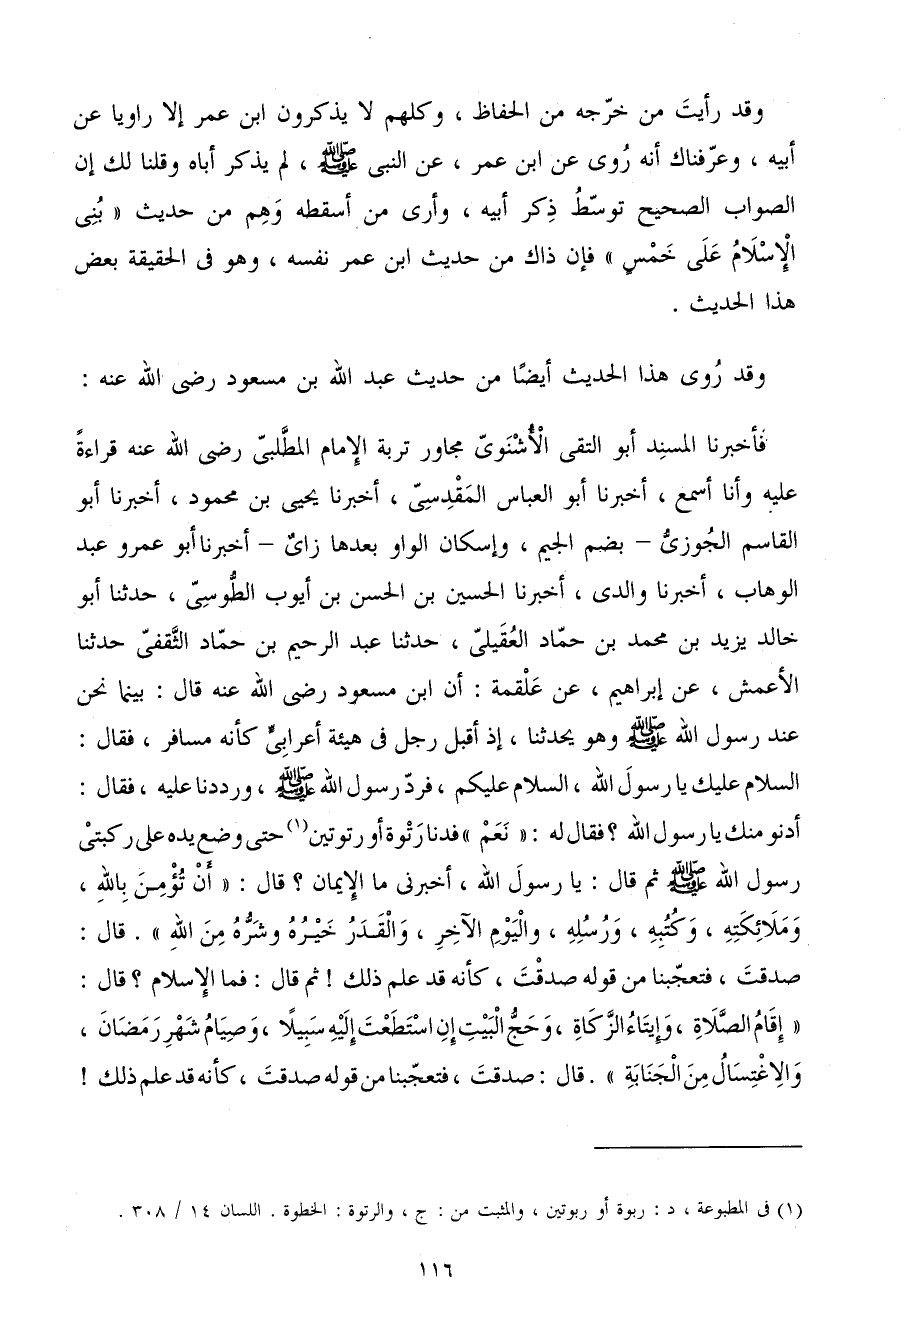 وقد رأيتَ من خرّجه من الحفاظ ، وكلهم لا يذكرون ابن عمر إلا راويا عن
أبيه ، وعرّفناك أنه رُوى عن ابن عمر ، عن النبى ﷺ ، لم يذكر أباه وقلنا لك إن
الصواب الصحيح توسّطُ ذِكر أبيه ، وأرى من أسقطه وَهِم من حديث « بُنِى
الْإِسْلَامُ عَلَى خَمْسٍ » فإن ذاك من حديث ابن عمر نفسه ، وهو فى الحقيقة بعض
هذا الحديث .
وقد رُوى هذا الحديث أيضًا من حديث عبد الله بن مسعود رضى الله عنه :
فأخبرنا المسنِد أبو التقى الْأُشْنَوىّ مجاور تربة الإمام المطَّلبىّ رضى الله عنه قراءةً
عليه وأنا أسمع ، أخبرنا أبو العباس المَقْدِسىّ ، أخبرنا يحيى بن محمود ، أخبرنا أبو
القاسم الجُوزىُّ – بضم الجيم ، وإسكان الواو بعدها زاىٌ – أخبرنا أبو عمرو عبد
الوهاب ، أخبرنا والدى ، أخبرنا الحسين بن الحسن بن أيوب الطُّوسىّ ، حدثنا أبو
خالد يزيد بن محمد بن حمّاد العُقَيلىّ ، حدثنا عبد الرحيم بن حمّاد الثَّقفىّ حدثنا
الأعمش ، عن إبراهيم ، عن عَلْقمة : أن ابن مسعود رضى الله عنه قال : بينما نحن
عند رسول الله ﷺ وهو يحدثنا ، إذ أقبل رجل فى هيئة أعرابِىٍّ كأنه مسافر ، فقال :
السلام عليك يا رسولَ الله ، السلام عليكم ، فردّ رسول الله ﷺ ، ورددنا عليه ، فقال :
أدنو منك يا رسول الله ؟ فقال له : « نَعَمْ » فدنا رَتْوة أو رتوتين(١) حتى وضع يده على ركبتىْ
رسول الله ﷺ ثم قال : يا رسولَ الله ، أخبرنى ما الإيمان ؟ قال : « أَنْ تُؤْمِنَ بِاللهِ ،
وَمَلَائِكَتِهِ ، وَكُتُبِهِ ، وَرُسُلِهِ ، والْيَوْمِ الآخِرِ ، وَالْقَدَرُ خَيْرُهُ وشَرُّهُ مِنَ اللهِ » . قال :
صدقتَ ، فتعجّبنا من قوله صدقْتَ ، كأنه قد علم ذلك ! ثم قال : فما الإسلام ؟ قال :
« إِقَامُ الصَّلَاةِ ، وَإِيتَاءُ الزَّكَاةِ ، وَحَجُّ الْبَيْتِ إِنِ اسْتَطَعْتَ إِلَيْهِ سَبِيلًا ، وَصِيَامُ شَهْرِ رَمَضَانَ ،
وَالِاغْتِسَالُ مِنَ الْجَنَابَةِ » . قال : صدقتَ ، فتعجّبنا من قوله صدقتَ ، كأنه قد علم ذلك !
(١) فى المطبوعة ، د : ربوة أو ربوتين ، والمثبت من : ج ، والرتوة : الخطوة . اللسان ١٤ / ٣٠٨ .
١١٦